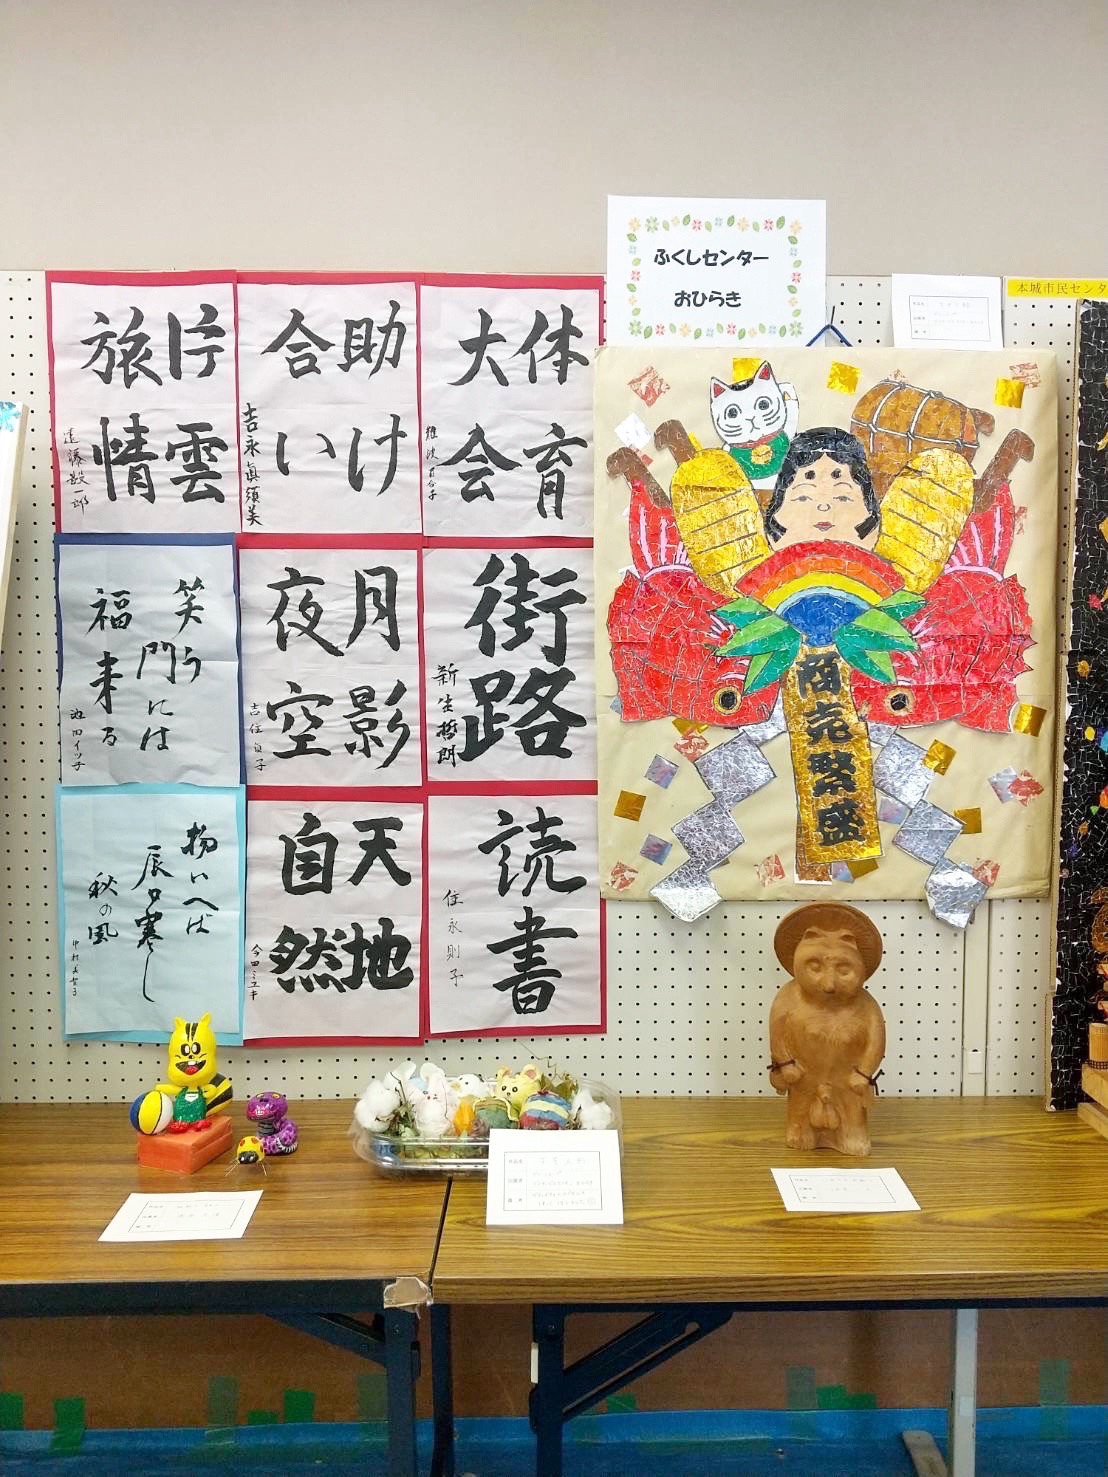 ふくしセンター
おひらき
本城市民センタ
体育
大会
助け
合い
吉永眞須美
片雲
旅情
遠藤毅一郎
街路
新生哲朗
月影
夜空
吉住貞子
笑う
門には
福来る
池田イツ子
読書
住永則子
天地
自然
今田ミユキ
物いへば
唇寒し
秋の風
商売繁盛